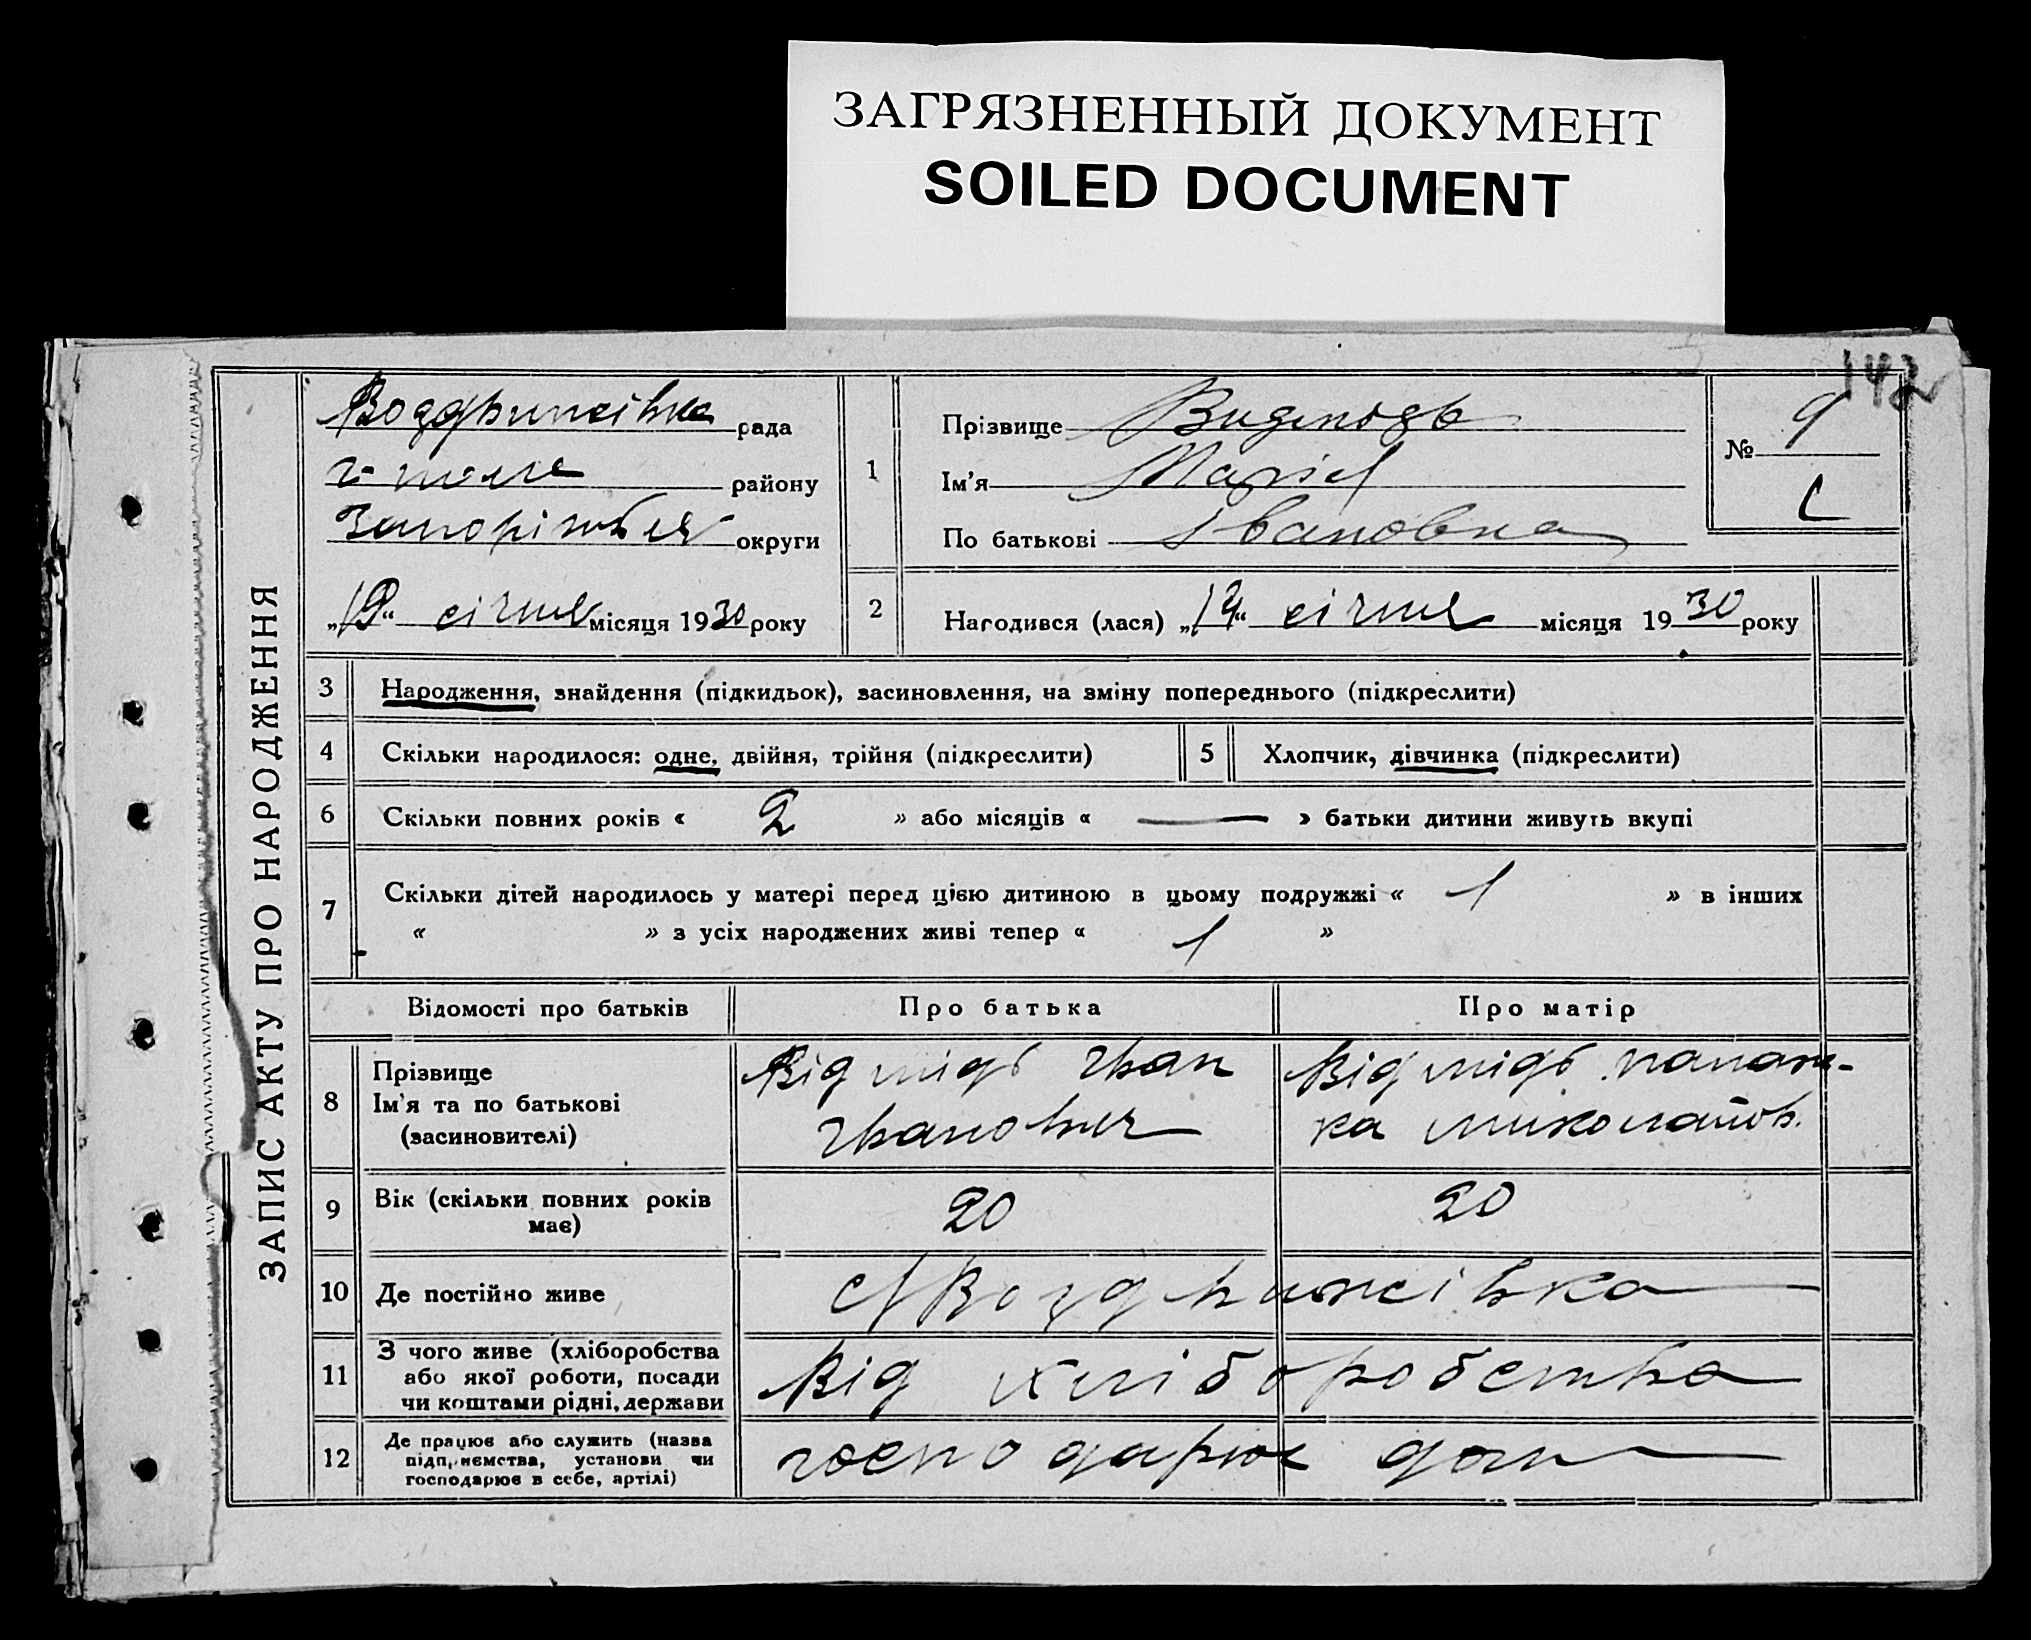 ЗАГРЯЗНЕННЫЙ ДОКУМЕНТ
SOILED DOCUMENT
142
ЗАПИС АКТУ ПРО НАРОДЖЕННЯ
Воздвижівка рада
г-поле району
Запоріжжя округи
„19“ січня місяця 1930 року
1
Прізвище
Ім'я Марія
По батькові Івановна
№ 9
2 Народився (лася) „14“ січня місяця 1930 року
3 Народження, знайдення (підкидьок), засиновлення, на зміну попереднього (підкреслити)
4 Скільки народилося: одне, двійня, трійня (підкреслити) 5 Хлопчик, дівчинка (підкреслити)
6 Скільки повних років « 2 » або місяців « — » батьки дитини живуть вкупі
7 Скільки дітей народилось у матері перед цією дитиною в цьому подружжі « 1 » в інших
« » з усіх народжених живі тепер « 1 »
Відомості про батьків Про батька Про матір
8 Прізвище
Ім'я та по батькові
(засиновителі)
Відмидь Іван
Іванович
Відмидь Палаж-
ка Миколаїов.
9 Вік (скільки повних років
має)
20 20
10 Де постійно живе с Воздвижівка
11 З чого живе (хліборобства
або якої роботи, посади
чи коштами рідні, держави
Від хліборобства
12 Де працює або служить (назва
підприємства, установи чи
господарює в себе, артілі)
господарює дом